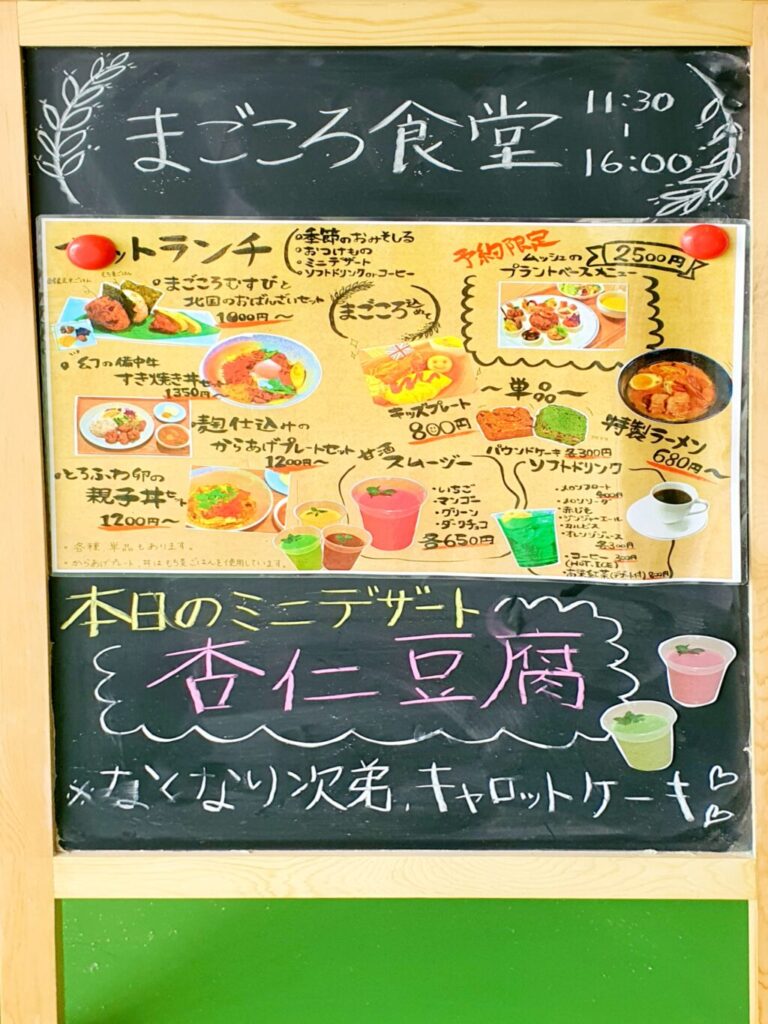 まごころ食堂
11:30
-
16:00
ットランチ
•季節のおみそしる
•おつけもの
•ミニデザート
•ソフトドリンクorコーヒー
•まごころむすびと
北国のおばんざいセット
1000円〜
幻の備中牛
すき焼き丼セット
1350円〜
•麹仕込みの
からあげプレートセット
1200円〜
•とろふわ卵の
親子丼セット
1200円〜
・各種、単品もあります。
・からあげプレート、丼はもち麦ごはんを使用しています。
まごころ込めて
予約限定
ムッシュの
プラントベースメニュー
2500円
キッズプレート
800円
〜単品〜
パウンドケーキ 各300円
特製ラーメン
680円〜
甘酒
スムージー
•いちご
•マンゴー
•グリーン
•ダークチョコ
各650円
ソフトドリンク
・メロンフロート
・メロンソーダ
・赤じそ
・ジンジャーエール
・カルピス
・オレンジジュース
各300円
・コーヒー 300円
(HOT.ICE)
本日のミニデザート
杏仁豆腐
※なくなり次第、キャロットケーキ♡♡